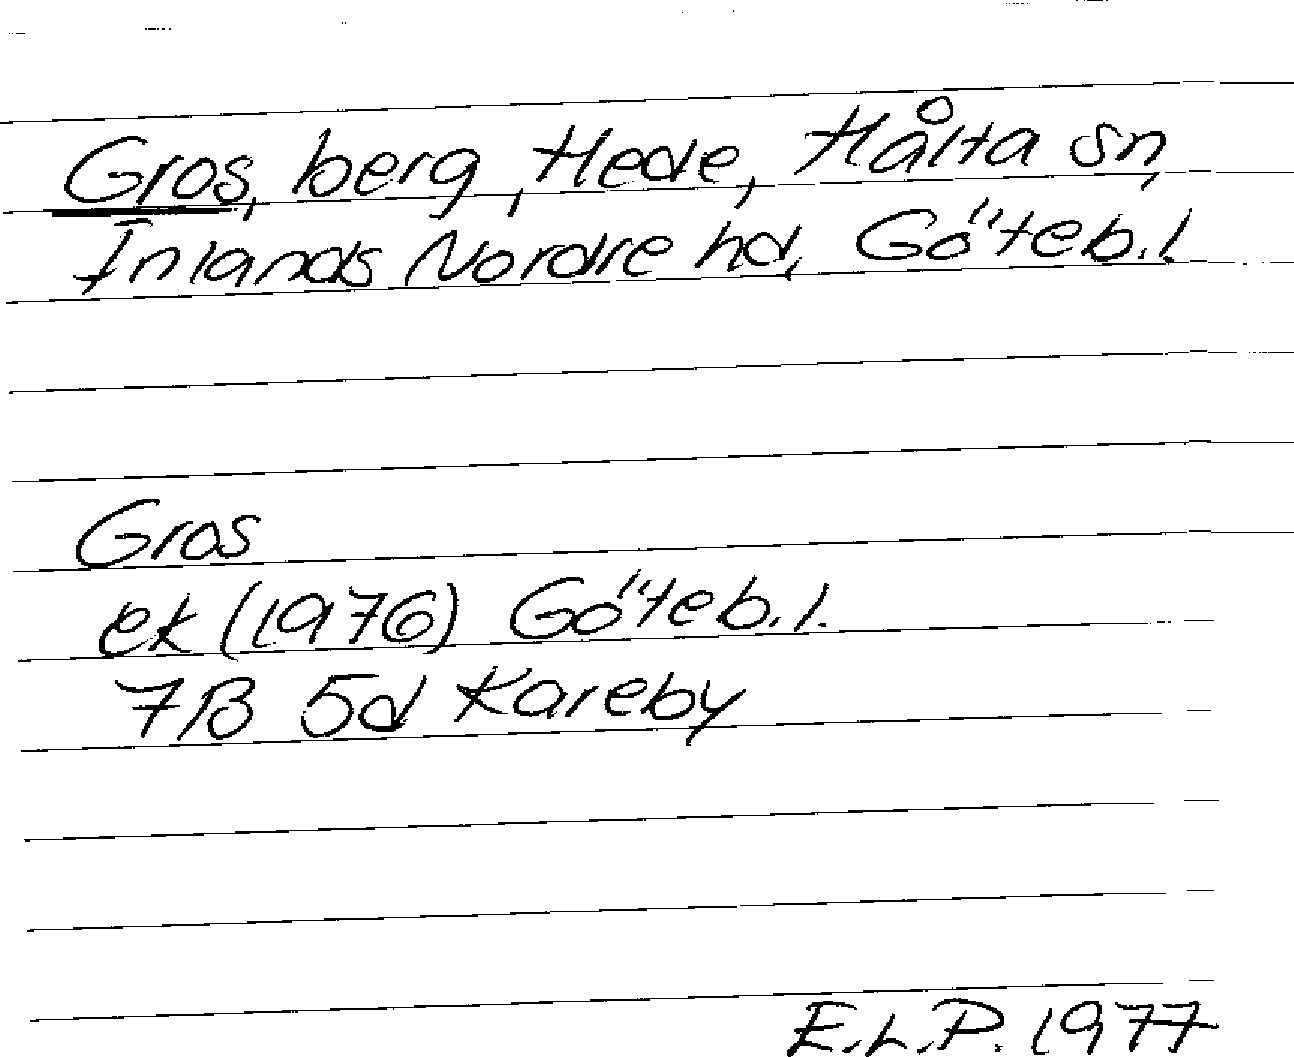 Gros, berg, Hede, Hålta sn,
Inlands Nordre hd, Göteb.l.
Gros
ek (1976) Göteb.l.
7B 5d Kareby
E.L.P. 1977